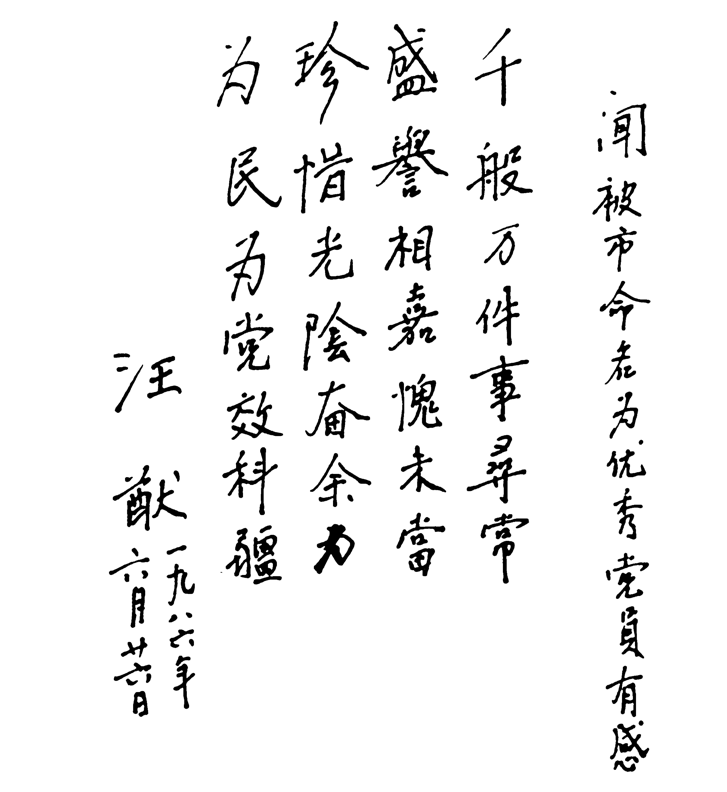 闻被市命名为优秀党员有感
千般万件事尋常
盛譽相嘉愧未當
珍惜光陰奋余力
为民为党效科疆
汪猷
一九八六年
六月廿六日